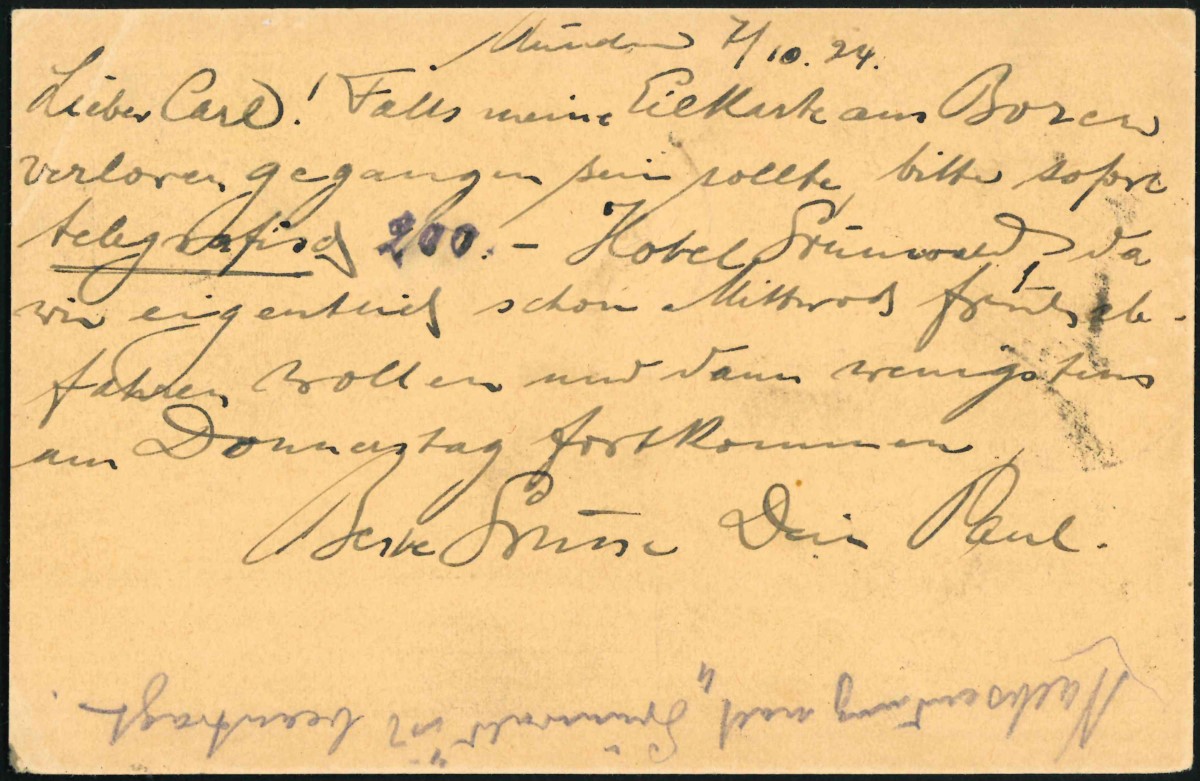 München 7/10.24.
Lieber Carl! Falls meine Eilkarte aus Bozen
verloren gegangen sein sollte, bitte sofort
telegrafisch 200.- Hotel Grünwald, da
wir eigentlich schon Mittwoch früh ab-
fahren wollten und dann wenigstens
am Donnerstag fortkommen
Beste Grüsse Dein Paul.
Nachsendung nach „Grünwald" ist beantragt.